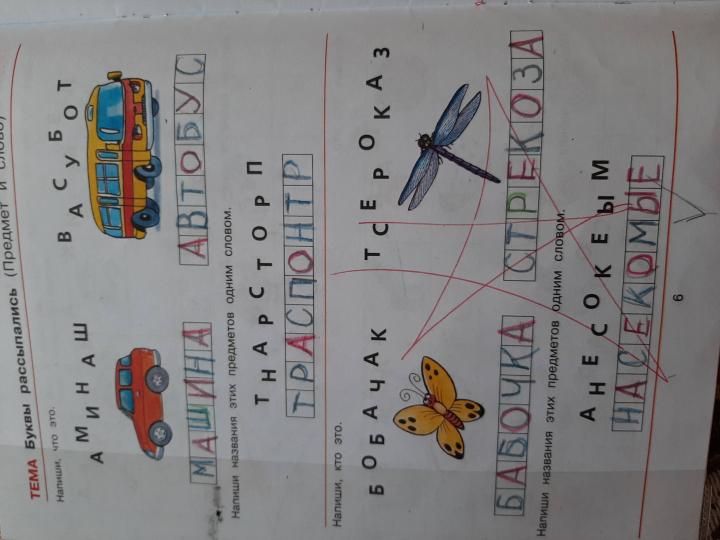 ТЕМА Буквы рассыпались (Предмет и слово)
Напиши, что это.
АМИНАШ ВАСУБОТ
МАШИНА АВТОБУС
Напиши названия этих предметов одним словом.
ТНАРСТОРП
ТРАСПОНТР
Напиши, кто это.
БОБАЧАК ТСЕРОКАЗ
БАБОЧКА СТРЕКОЗА
Напиши названия этих предметов одним словом.
АНЕСОКЕЫМ
НАСЕКОМЫЕ
6